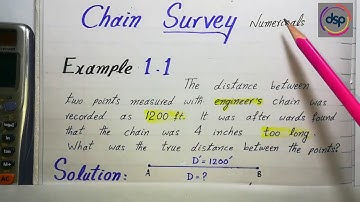 Chain Survey Numericals
dsp
Example 1.1
The distance between
two points measured with engineer's chain was
recorded as 1200 ft. It was after wards found
that the chain was 4 inches too long.
What was the true distance between the points?
Solution:
D' = 1200'
A B
D = ?